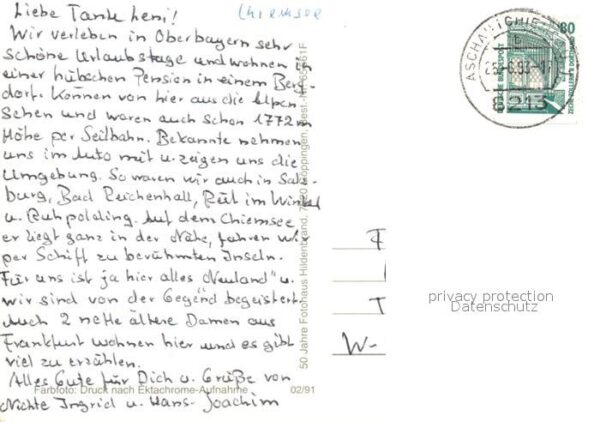 Liebe Tante Leni!
Chiemsee
Wir verleben in Oberbayern sehr
schöne Urlaubstage und wohnen in
einer hübschen Pension in einem Berg-
dorf. Können von hier aus die Alpen
sehen und waren auch schon 1772 m
Höhe per Seilbahn. Bekannte nehmen
uns im Auto mit u. zeigen uns die
Umgebung. So waren wir auch in Salz-
burg, Bad Reichenhall, Reit im Winkl
u. Ruhpolding. Auf dem Chiemsee,
er liegt ganz in der Nähe, fahren wir
per Schiff zu berühmten Inseln.
Für uns ist ja hier alles „Neuland" u.
wir sind von der Gegend begeistert.
Auch 2 nette ältere Damen aus
Frankfurt wohnen hier und es gibt
viel zu erzählen.
Alles Gute für Dich u. Grüße von
Nichte Ingrid u. Hans-Joachim
Farbfoto: Druck nach Ektachrome-Aufnahme 02/91
50 Jahre Fotohaus Hildenbrand, Göppingen, Best.-Nr.
ASCHAU I CHIEM
6.93
8213
80
DEUTSCHE BUNDESPOST
ZECHE ZOLLERN II DORTMUND
F
T
W-
privacy protection
Datenschutz